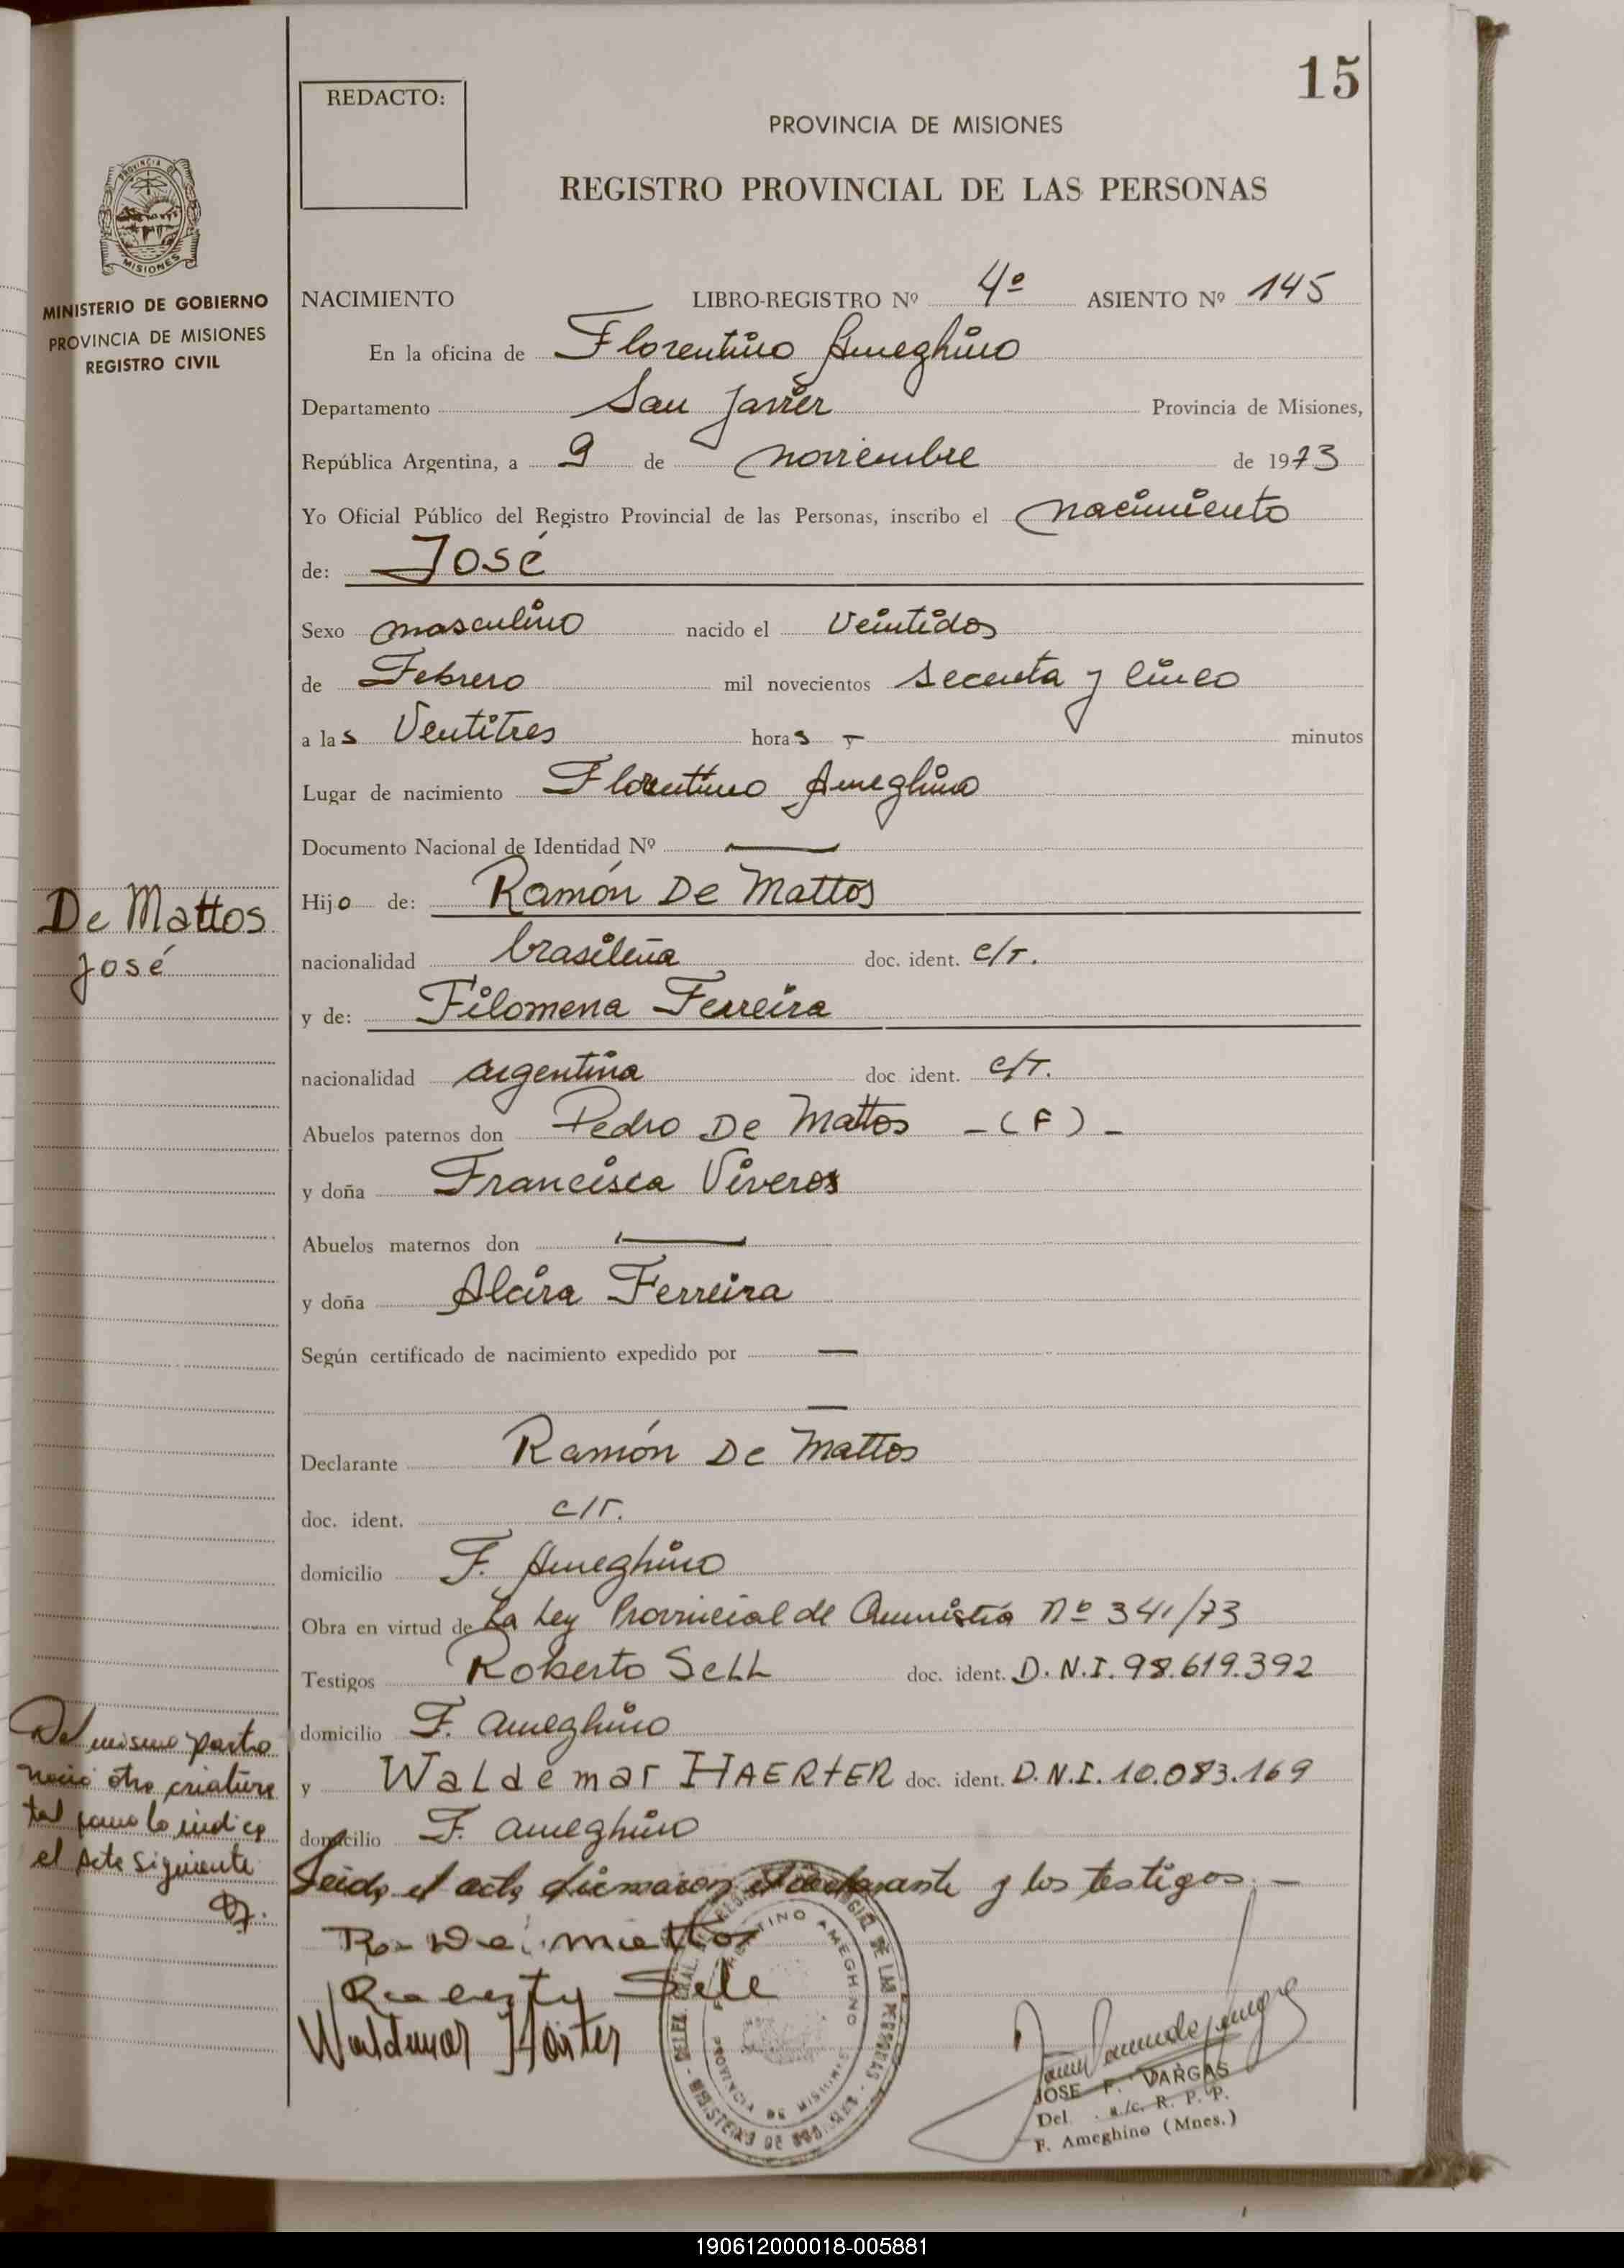 15
REDACTO:
PROVINCIA DE MISIONES
REGISTRO PROVINCIAL DE LAS PERSONAS
PROVINCIA DE
MISIONES
MINISTERIO DE GOBIERNO
PROVINCIA DE MISIONES
REGISTRO CIVIL
NACIMIENTO LIBRO-REGISTRO Nº 4º ASIENTO Nº 145
En la oficina de Florentino Ameghino
Departamento San Javier Provincia de Misiones,
República Argentina, a 9 de noviembre de 1973
Yo Oficial Público del Registro Provincial de las Personas, inscribo el nacimiento
de: José
Sexo masculino nacido el Veintidos
de Febrero mil novecientos secenta y cinco
a las Ventitres horas - minutos
Lugar de nacimiento Florentino Ameghino
Documento Nacional de Identidad Nº —
De Mattos
José
Hijo de: Ramón De Mattos
nacionalidad brasileña doc. ident. C/T.
y de: Filomena Ferreira
nacionalidad argentina doc ident. C/T.
Abuelos paternos don Pedro De Mattos - (F) -
y doña Francisca Viveros
Abuelos maternos don —
y doña Alcira Ferreira
Según certificado de nacimiento expedido por —
—
Declarante Ramón De Mattos
doc. ident. C/T.
domicilio F. Ameghino
Obra en virtud de La Ley Provincial de Amnistia nº 341/73
Testigos Roberto SeLL doc. ident. D.N.I. 98.619.392
domicilio F. Ameghino
y WaLdemar HAERtER doc. ident. D.N.I. 10.083.169
domicilio F. Ameghino
Del mismo parto
nació otra criatura
tal como lo indica
el acta siguiente
Leida el acta firmaron el declarante y los testigos. -
R. De mattos
Waldemar Härter
FLORENTINO AMEGHINO
PROVINCIA DE MISIONES
JOSE F. VARGAS
Del. a/c. R. P. P.
F. Ameghino (Mnes.)
190612000018-005881